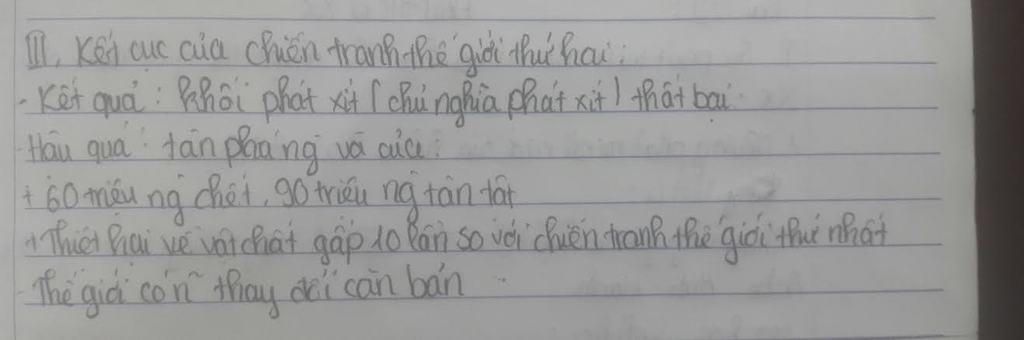 III, Kết cục của chiến tranh thế giới thứ hai:
- Kết quả: khối phát xít (chủ nghĩa phát xít) thất bại
- Hậu quả: tàn phá nặng và
+ 60 triệu ng chết, 90 triệu ng tàn tật
+ Thiệt hại về vật chất gấp 10 lần so với chiến tranh thế giới thứ nhất
- Thế giới có thay đổi căn bản